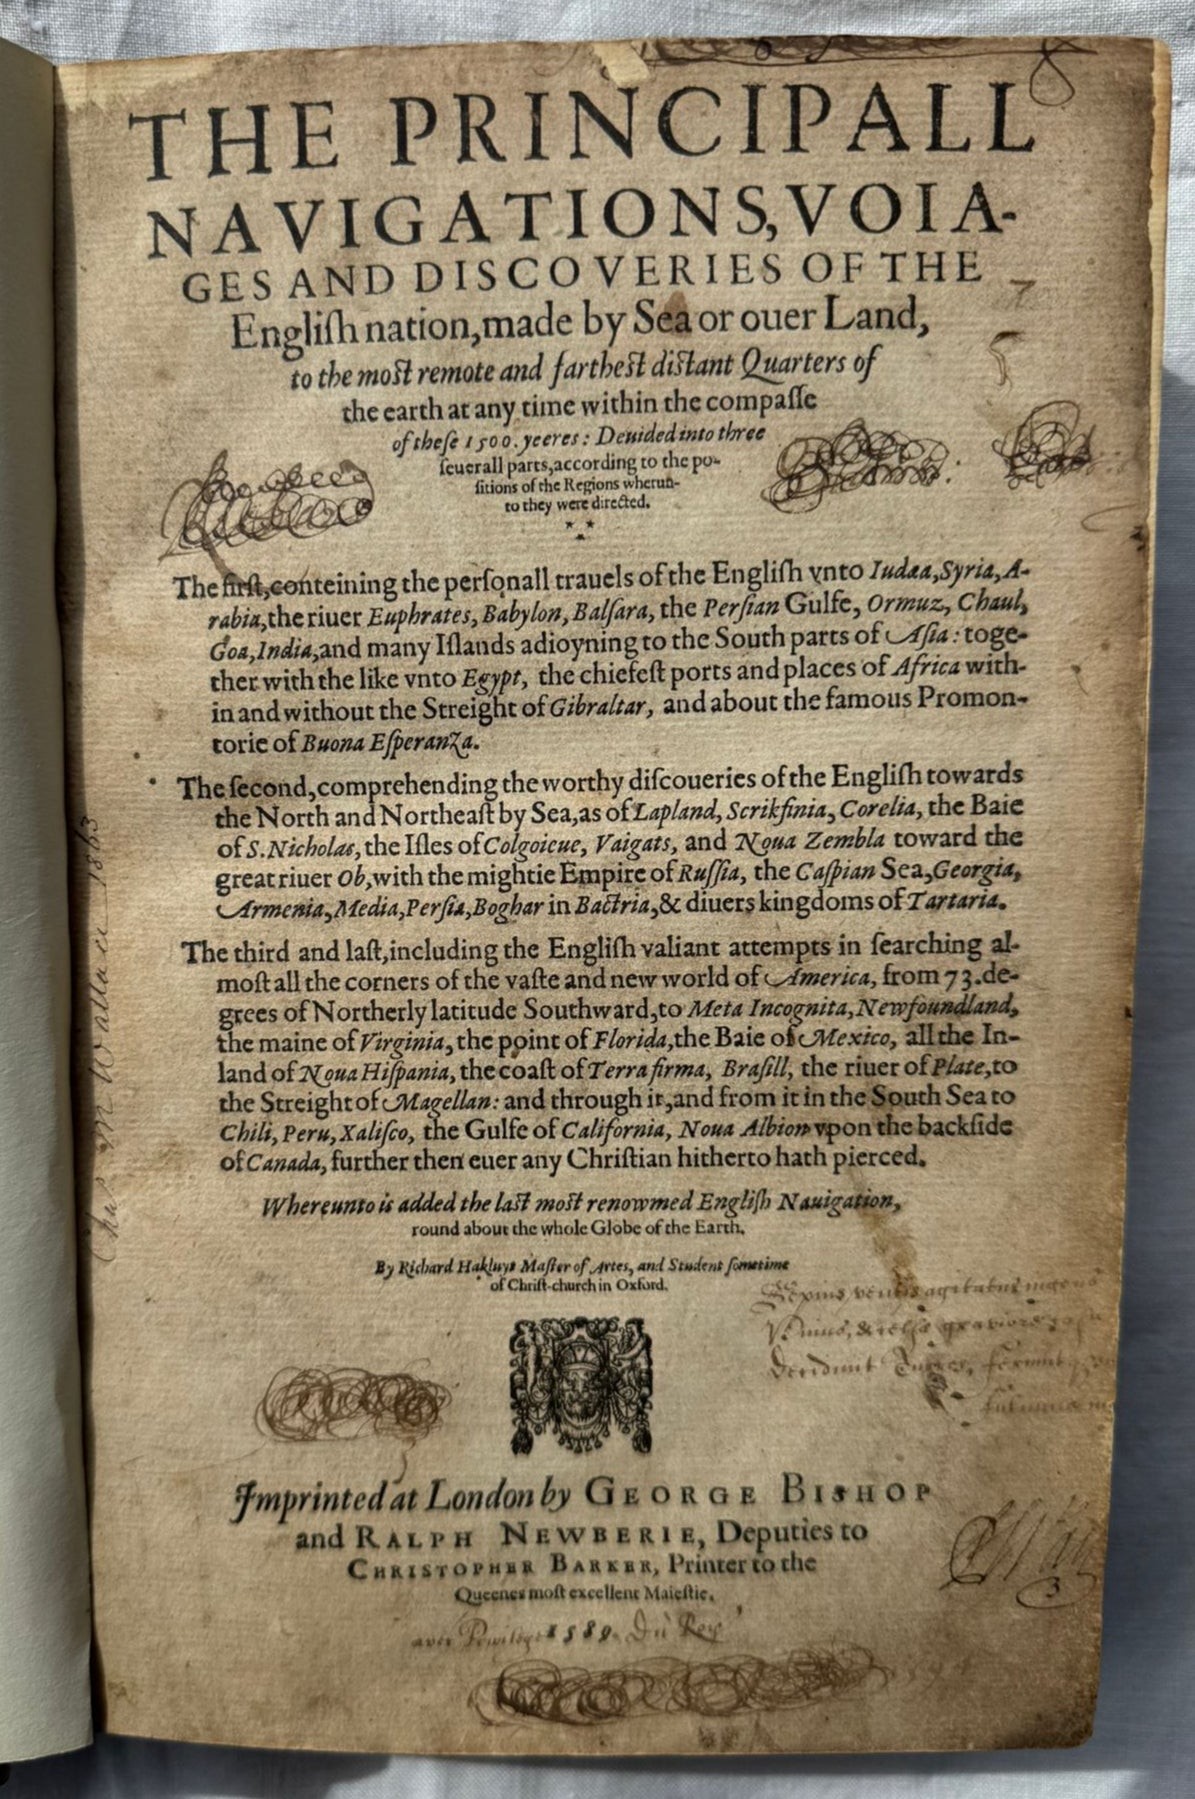 THE PRINCIPALL
NAVIGATIONS, VOIA-
GES AND DISCOVERIES OF THE
Engliſh nation, made by Sea or ouer Land,
to the most remote and fartheſt diſtant Quarters of
the earth at any time within the compaſſe
of theſe 1500. yeeres: Deuided into three
ſeuerall parts, according to the po-
ſitions of the Regions wherun-
to they were directed.
The firſt, conteining the perſonall trauels of the Engliſh vnto Iudæa, Syria, A-
rabia, the riuer Euphrates, Babylon, Balſara, the Perſian Gulfe, Ormuz, Chaul,
Goa, India, and many Iſlands adioyning to the South parts of Aſia: toge-
ther with the like vnto Egypt, the chiefeſt ports and places of Africa with-
in and without the Streight of Gibraltar, and about the famous Promon-
torie of Buona Eſperanza.
The ſecond, comprehending the worthy diſcoueries of the Engliſh towards
the North and Northeaſt by Sea, as of Lapland, Scrikfinia, Corelia, the Baie
of S. Nicholas, the Iſles of Colgoieue, Vaigats, and Noua Zembla toward the
great riuer Ob, with the mightie Empire of Ruſſia, the Caſpian Sea, Georgia,
Armenia, Media, Perſia, Boghar in Bactria, & diuers kingdoms of Tartaria.
The third and laſt, including the Engliſh valiant attempts in ſearching al-
moſt all the corners of the vaſte and new world of America, from 73. de-
grees of Northerly latitude Southward, to Meta Incognita, Newfoundland,
the maine of Virginia, the point of Florida, the Baie of Mexico, all the In-
land of Noua Hiſpania, the coaſt of Terra firma, Braſill, the riuer of Plate, to
the Streight of Magellan: and through it, and from it in the South Sea to
Chili, Peru, Xaliſco, the Gulfe of California, Noua Albion vpon the backſide
of Canada, further then euer any Chriſtian hitherto hath pierced.
Whereunto is added the laſt moſt renowmed Engliſh Nauigation,
round about the whole Globe of the Earth.
By Richard Hakluyt Maſter of Artes, and Student ſometime
of Chriſt-church in Oxford.
Imprinted at London by GEORGE BISHOP
and RALPH NEWBERIE, Deputies to
CHRISTOPHER BARKER, Printer to the
Queenes moſt excellent Maieſtie.
1589. Du Roy
Wallace 1863